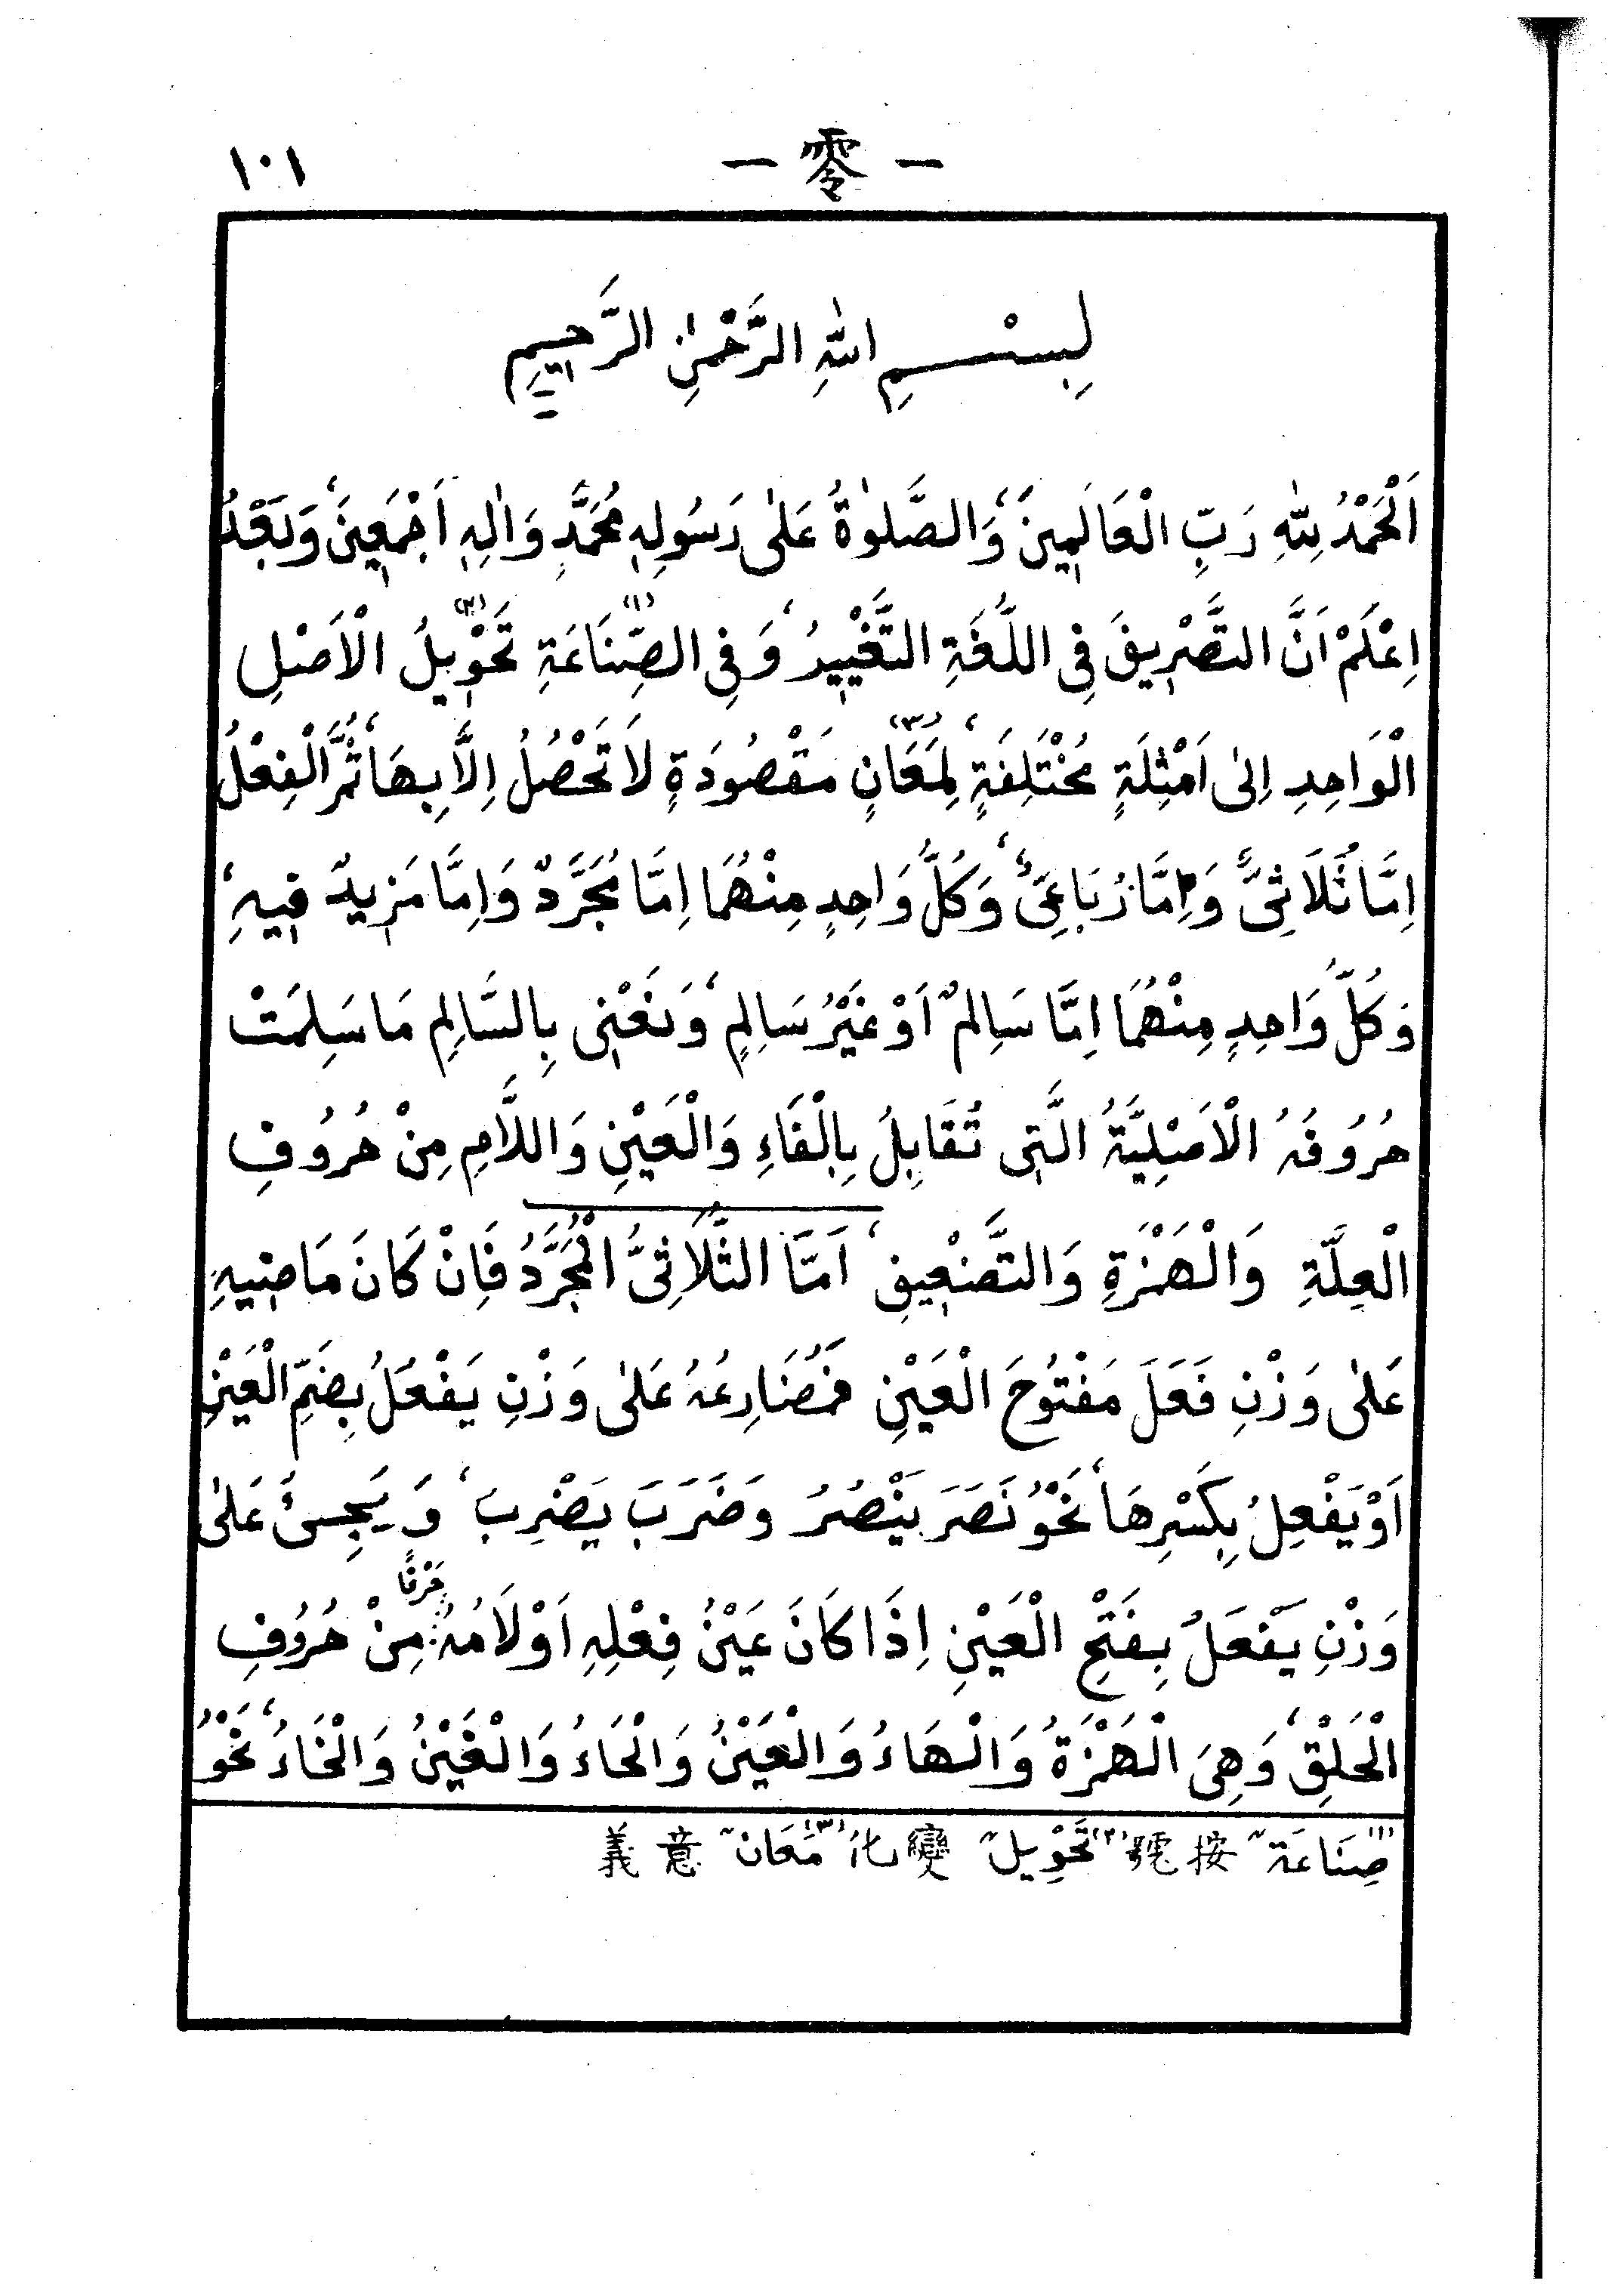 一零一 ١٠١
بِسْـــمِ اللهِ الرَّحْمٰنِ الرَّحِيمِ
اَلْحَمْدُ لِلّٰهِ رَبِّ الْعَالَمِينَ، وَالصَّلٰوةُ عَلٰى رَسُولِهٖ مُحَمَّدٍ وَاٰلِهٖ اَجْمَعِينَ، وَبَعْدُ
اِعْلَمْ اَنَّ التَّصْرِيفَ فِى اللُّغَةِ التَّغْيِيرُ، وَفِى الصِّنَاعَةِ (١) تَحْوِيلُ (٢) الْاَصْلِ
الْوَاحِدِ اِلٰى اَمْثِلَةٍ مُخْتَلِفَةٍ، لِمَعَانٍ (٣) مَقْصُودَةٍ لَا تَحْصُلُ اِلَّا بِهَا، ثُمَّ الْفِعْلُ
اِمَّا ثُلَاثِىٌّ، وَاِمَّا رُبَاعِىٌّ، وَكُلُّ وَاحِدٍ مِنْهُمَا اِمَّا مُجَرَّدٌ وَاِمَّا مَزِيدٌ فِيهِ،
وَكُلُّ وَاحِدٍ مِنْهُمَا اِمَّا سَالِمٌ اَوْ غَيْرُ سَالِمٍ، وَنَعْنِى بِالسَّالِمِ مَا سَلِمَتْ
حُرُوفُهُ الْاَصْلِيَّةُ الَّتِى تُقَابِلُ بِالْفَاءِ وَالْعَيْنِ وَاللَّامِ مِنْ حُرُوفِ
الْعِلَّةِ وَالْهَمْزَةِ وَالتَّضْعِيفِ، اَمَّا الثُّلَاثِىُّ الْمُجَرَّدُ فَاِنْ كَانَ مَاضِيهِ
عَلٰى وَزْنِ فَعَلَ مَفْتُوحَ الْعَيْنِ فَمُضَارِعُهُ عَلٰى وَزْنِ يَفْعُلُ بِضَمِّ الْعَيْنِ
اَوْ يَفْعِلُ بِكَسْرِهَا، نَحْوُ نَصَرَ يَنْصُرُ وَضَرَبَ يَضْرِبُ، وَيَجِىئُ عَلٰى
وَزْنِ يَفْعَلُ بِفَتْحِ الْعَيْنِ اِذَا كَانَ عَيْنُ فِعْلِهِ اَوْ لَامُهُ حَرْفًا مِنْ حُرُوفِ
الْحَلْقِ، وَهِىَ الْهَمْزَةُ وَالْهَاءُ وَالْعَيْنُ وَالْحَاءُ وَالْغَيْنُ وَالْخَاءُ، نَحْوُ
(١) صِنَاعَة〃 按號 (٢) تَحْوِيل〃 變化 (٣) مَعَان〃 意義